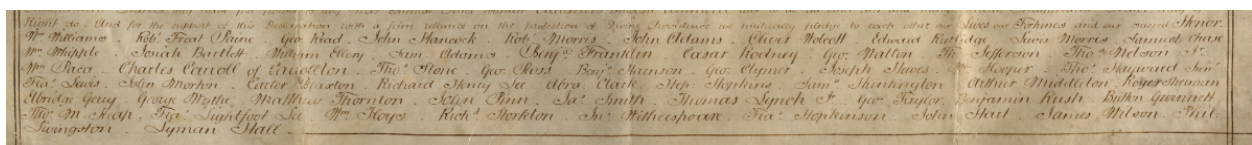 Right do. And for the support of this Declaration with a firm reliance on the protection of Divine Providence we mutually pledge to each other our Lives our Fortunes and our sacred Honor.
Wm Williams. Robt Treat Paine Geo Read. John Hancock. Robt Morris. John Adams. Oliver Wolcott Edward Rutledge Lewis Morris. Samuel Chase
Wm Whipple. Josiah Bartlett. William Ellery. Sam Adams. Benja Franklen Casar Rodney. Geo. Walton Th Jefferson. Tho Nelson Jr.
Wm Paca. Charles Carroll of Carrollton. Tho Stone. Geo Ross Benj Harrison. Geo. Clymer. Joseph Hewes. Wm Hooper. Tho Heyward Junr
Fra Lewis. John Morton. Carter Braxton. Richard Henry Lee Abra Clark. Step. Hopkins. Sam Huntington Arthur Middleton. Roger Sherman
Elbridge Gerry. George Wythe. Matthew Thornton. John Penn. Ja Smith. Thomas Lynch Jr Geo Taylor. Benjamin Rush. Button Gwinnett
Tho M. Keap. Fra Lightfoot Lee. Wm Floyd. Rich Stockton. Jn Witherspoare Fra Hopkinson. John Hart. James Wilson. Phil.
Livingston. Lyman Hall.